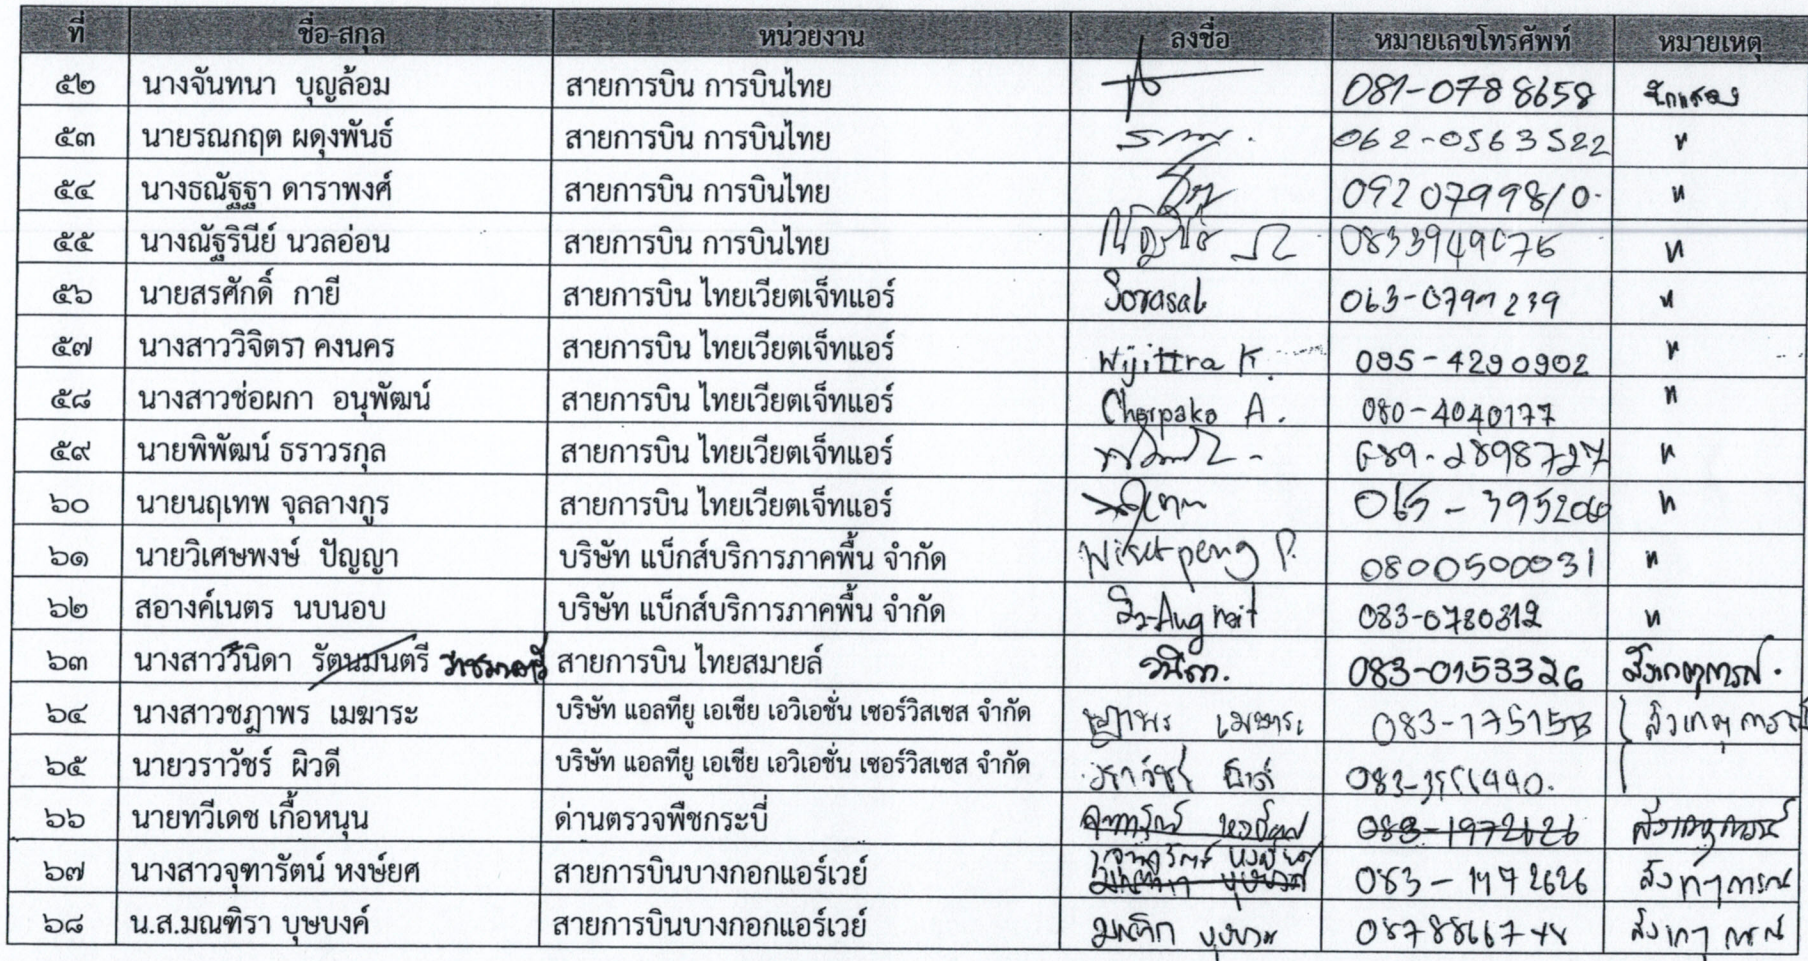 ที่ ชื่อ-สกุล หน่วยงาน ลงชื่อ หมายเลขโทรศัพท์ หมายเหตุ
๕๒ นางจันทนา บุญล้อม สายการบิน การบินไทย 081-0788658
๕๓ นายรณกฤต ผดุงพันธ์ สายการบิน การบินไทย 062-0563522 "
๕๔ นางธณัฐฐา ดาราพงศ์ สายการบิน การบินไทย 0920799810 "
๕๕ นางณัฐรินีย์ นวลอ่อน สายการบิน การบินไทย "
๕๖ นายสรศักดิ์ กายี สายการบิน ไทยเวียตเจ็ทแอร์ Sorasak "
๕๗ นางสาววิจิตรา คงนคร สายการบิน ไทยเวียตเจ็ทแอร์ Wijittra K. 095-4290902 "
๕๘ นางสาวช่อผกา อนุพัฒน์ สายการบิน ไทยเวียตเจ็ทแอร์ Chorpaka A. 080-4040177 "
๕๙ นายพิพัฒน์ ธราวรกุล สายการบิน ไทยเวียตเจ็ทแอร์ 089-2898727 "
๖๐ นายนฤเทพ จุลลางกูร สายการบิน ไทยเวียตเจ็ทแอร์ "
๖๑ นายวิเศษพงษ์ ปัญญา บริษัท แบ็กส์บริการภาคพื้น จำกัด P. 0800500031 "
๖๒ สอางค์เนตร นบนอบ บริษัท แบ็กส์บริการภาคพื้น จำกัด 083-0780312 "
๖๓ นางสาววนิดา รัตนมนตรี สายการบิน ไทยสมายล์ วนิดา. 083-0153326 สังเกตุการณ์.
๖๔ นางสาวชฎาพร เมฆาระ บริษัท แอลทียู เอเชีย เอวิเอชั่น เซอร์วิสเซส จำกัด ชฎาพร เมฆาระ สังเกตุการณ์
๖๕ นายวราวัชร์ ผิวดี บริษัท แอลทียู เอเชีย เอวิเอชั่น เซอร์วิสเซส จำกัด วราวัชร์ ผิวดี
๖๖ นายทวีเดช เกื้อหนุน ด่านตรวจพืชกระบี่ จุฑารัตน์ หงษ์ยศ 083-1972626 สังเกตุการณ์
๖๗ นางสาวจุฑารัตน์ หงษ์ยศ สายการบินบางกอกแอร์เวย์ จุฑารัตน์ หงษ์ยศ 083-1972626 สังเกตุการณ์
๖๘ น.ส.มณฑิรา บุษบงค์ สายการบินบางกอกแอร์เวย์ มณฑิรา บุษบงค์ สังเกตุการณ์